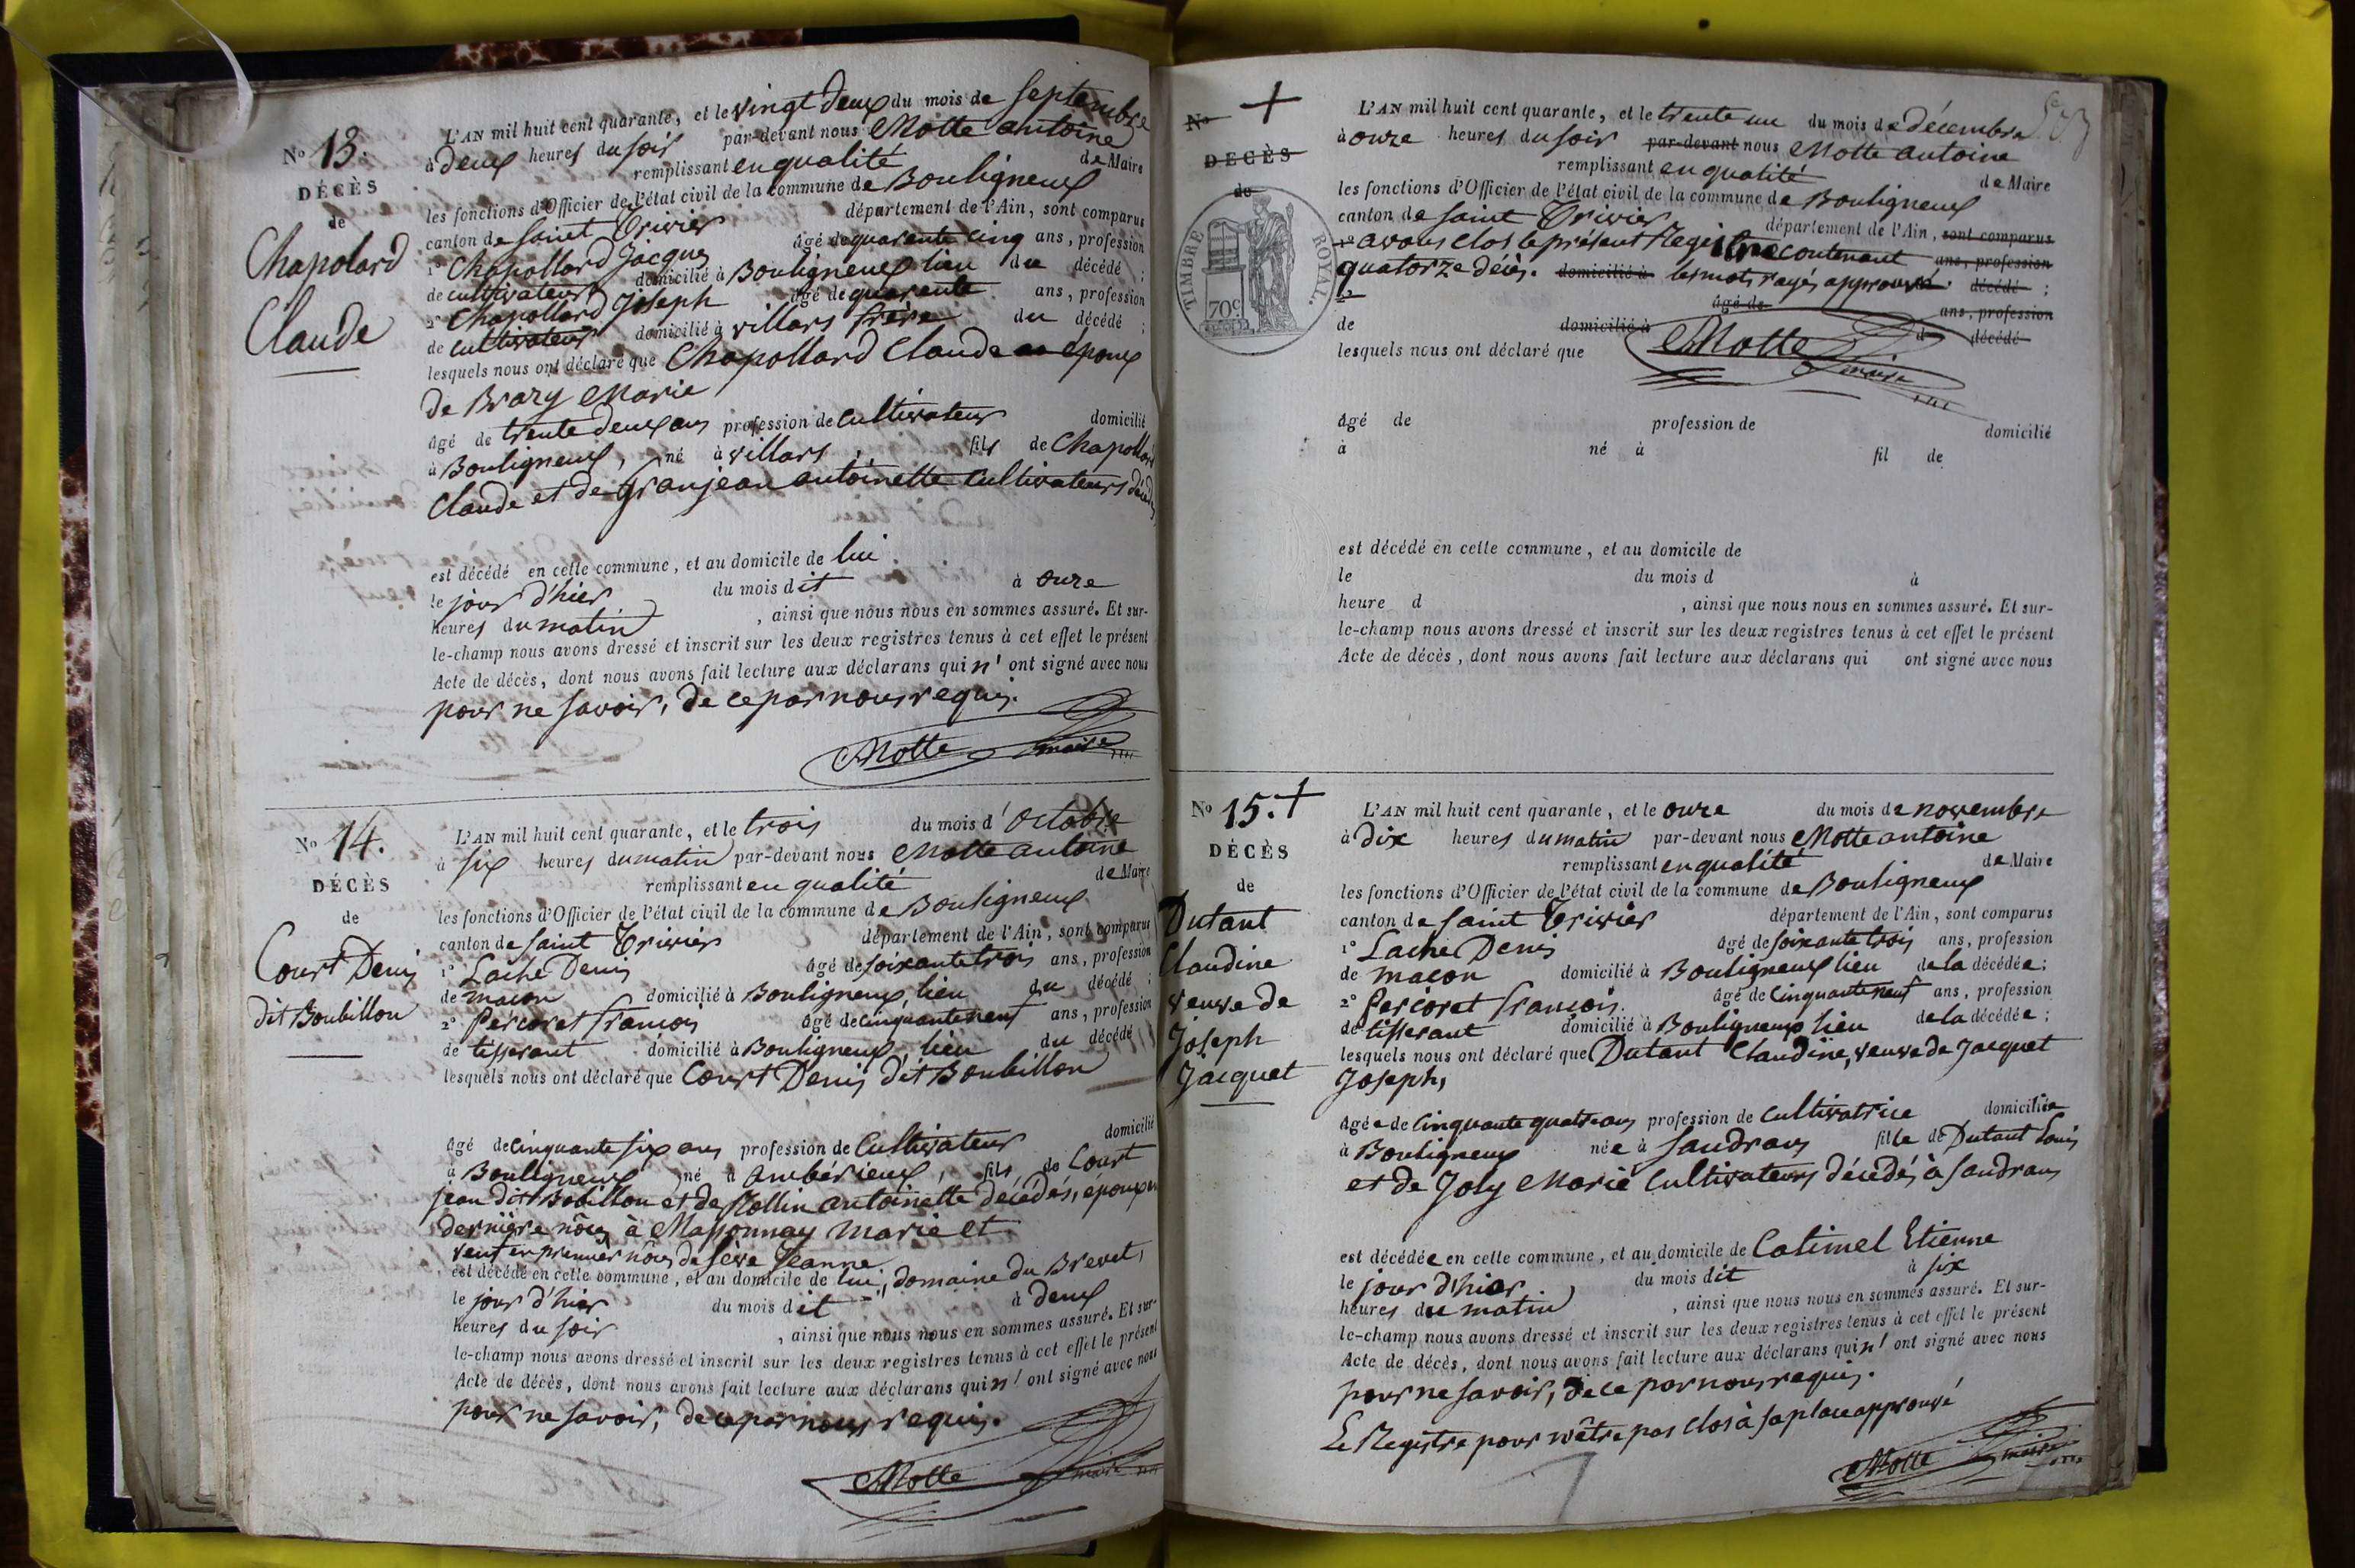 No 13.
DÉCÈS
de
Chapolard
Claude
L'AN mil huit cent quarante, et le vingt deux du mois de septembre
à deux heures du soir par-devant nous Motte antoine
remplissant en qualité de Maire
les fonctions d'Officier de l'état civil de la commune de Bouligneux
canton de saint Trivier département de l'Ain, sont comparus
1° Chapollard Jacques âgé de quarente cinq ans, profession
de cultivateur domicilié à Bouligneux lieu du décédé ;
2° Chapollard Joseph âgé de quarente ans, profession
de cultivateur domicilié à villars frère du décédé ;
lesquels nous ont déclaré que Chapollard Claude epoux
de Brazy Marie
âgé de trente deux ans profession de cultivateur domicilié
à Bouligneux, né à villars, fils de Chapollard
Claude et de Granjean antoinette cultivateurs décédés
est décédé en celle commune, et au domicile de lui
le jour d'hier du mois dit à onze
heures du matin , ainsi que nous nous en sommes assuré. Et sur-
le-champ nous avons dressé et inscrit sur les deux registres tenus à cet effet le présent
Acte de décès, dont nous avons fait lecture aux déclarans qui n' ont signé avec nous
pour ne savoir, de ce par nous requis.
Motte maire
No 14.
DÉCÈS
de
Court Denis
dit Boubillon
L'AN mil huit cent quarante, et le trois du mois d'Octobre
à six heures du matin par-devant nous Motte antoine
remplissant en qualité de Maire
les fonctions d'Officier de l'état civil de la commune de Bouligneux
canton de saint Trivier département de l'Ain, sont comparus
1° Lache Denis âgé de soixante trois ans, profession
de macon domicilié à Bouligneux, lieu du décédé ;
2° Percoret francois âgé de cinquante neuf ans, profession
de tisserant domicilié à Bouligneux, lieu du décédé
lesquels nous ont déclaré que Court Denis dit Boubillon
âgé de cinquante six ans profession de Cultivateur domicilié
à Bouligneux né à ambérieux, fils de Court
jean dit Bobillon et de Rollin antoinette décédés, époux en
dernière nôces à Massonnay marie et
veuf en premier nôces de seve Jeanne
est décédé en celle commune, et au domicile de lui, domaine du Brevet,
le jour d'hier du mois dit à deux
heures du soir , ainsi que nous nous en sommes assuré. Et sur-
le-champ nous avons dressé et inscrit sur les deux registres tenus à cet effet le présent
Acte de décès, dont nous avons fait lecture aux déclarans qui n' ont signé avec nous
pour ne savoir, de ce par nous requis.
Motte maire
No +
DÉCÈS
de
TIMBRE ROYAL.
70c
L'AN mil huit cent quarante, et le trente un du mois de décembre
à onze heures du soir par-devant nous Motte antoine
remplissant en qualité de Maire
les fonctions d'Officier de l'état civil de la commune de Bouligneux
canton de saint Trivier département de l'Ain, sont comparus
1° avons clos le présent Registre contenant ans, profession
quatorze décès. domicilié à les mots rayés approuvé décédé ;
2° âgé de ans, profession
de domicilié à d décédé
lesquels nous ont déclaré que Motte maire
âgé de profession de domicilié
à né à fil de
est décédé en celle commune, et au domicile de
le du mois d à
heure d , ainsi que nous nous en sommes assuré. Et sur-
le-champ nous avons dressé et inscrit sur les deux registres tenus à cet effet le présent
Acte de décès, dont nous avons fait lecture aux déclarans qui ont signé avec nous
No 15. +
DÉCÈS
de
Dutant
Claudine
veuve de
Joseph
Jacquet
L'AN mil huit cent quarante, et le onze du mois de novembre
à dix heures du matin par-devant nous Motte antoine
remplissant en qualité de Maire
les fonctions d'Officier de l'état civil de la commune de Bouligneux
canton de saint Trivier département de l'Ain, sont comparus
1° Lache Denis âgé de soixante trois ans, profession
de macon domicilié à Bouligneux lieu de la décédée ;
2° Percoret francois. âgé de cinquante neuf ans, profession
de tisserant domicilié à Bouligneux lieu de la décédée ;
lesquels nous ont déclaré que Dutant Claudine, veuve de Jacquet
Joseph,
âgée de cinquante quatre ans profession de cultivatrice domiciliée
à Bouligneux née à sandrans fille de Dutant Louis
et de Joly Marie Cultivateurs décédés à sandrans
est décédée en celle commune, et au domicile de Catimel Etienne
le jour d'hier du mois dit à six
heures du matin , ainsi que nous nous en sommes assuré. Et sur-
le-champ nous avons dressé et inscrit sur les deux registres tenus à cet effet le présent
Acte de décès, dont nous avons fait lecture aux déclarans qui n' ont signé avec nous
pour ne savoir, de ce par nous requis.
Le Registre pour n'être pas clos à sa place approuvé
Motte maire